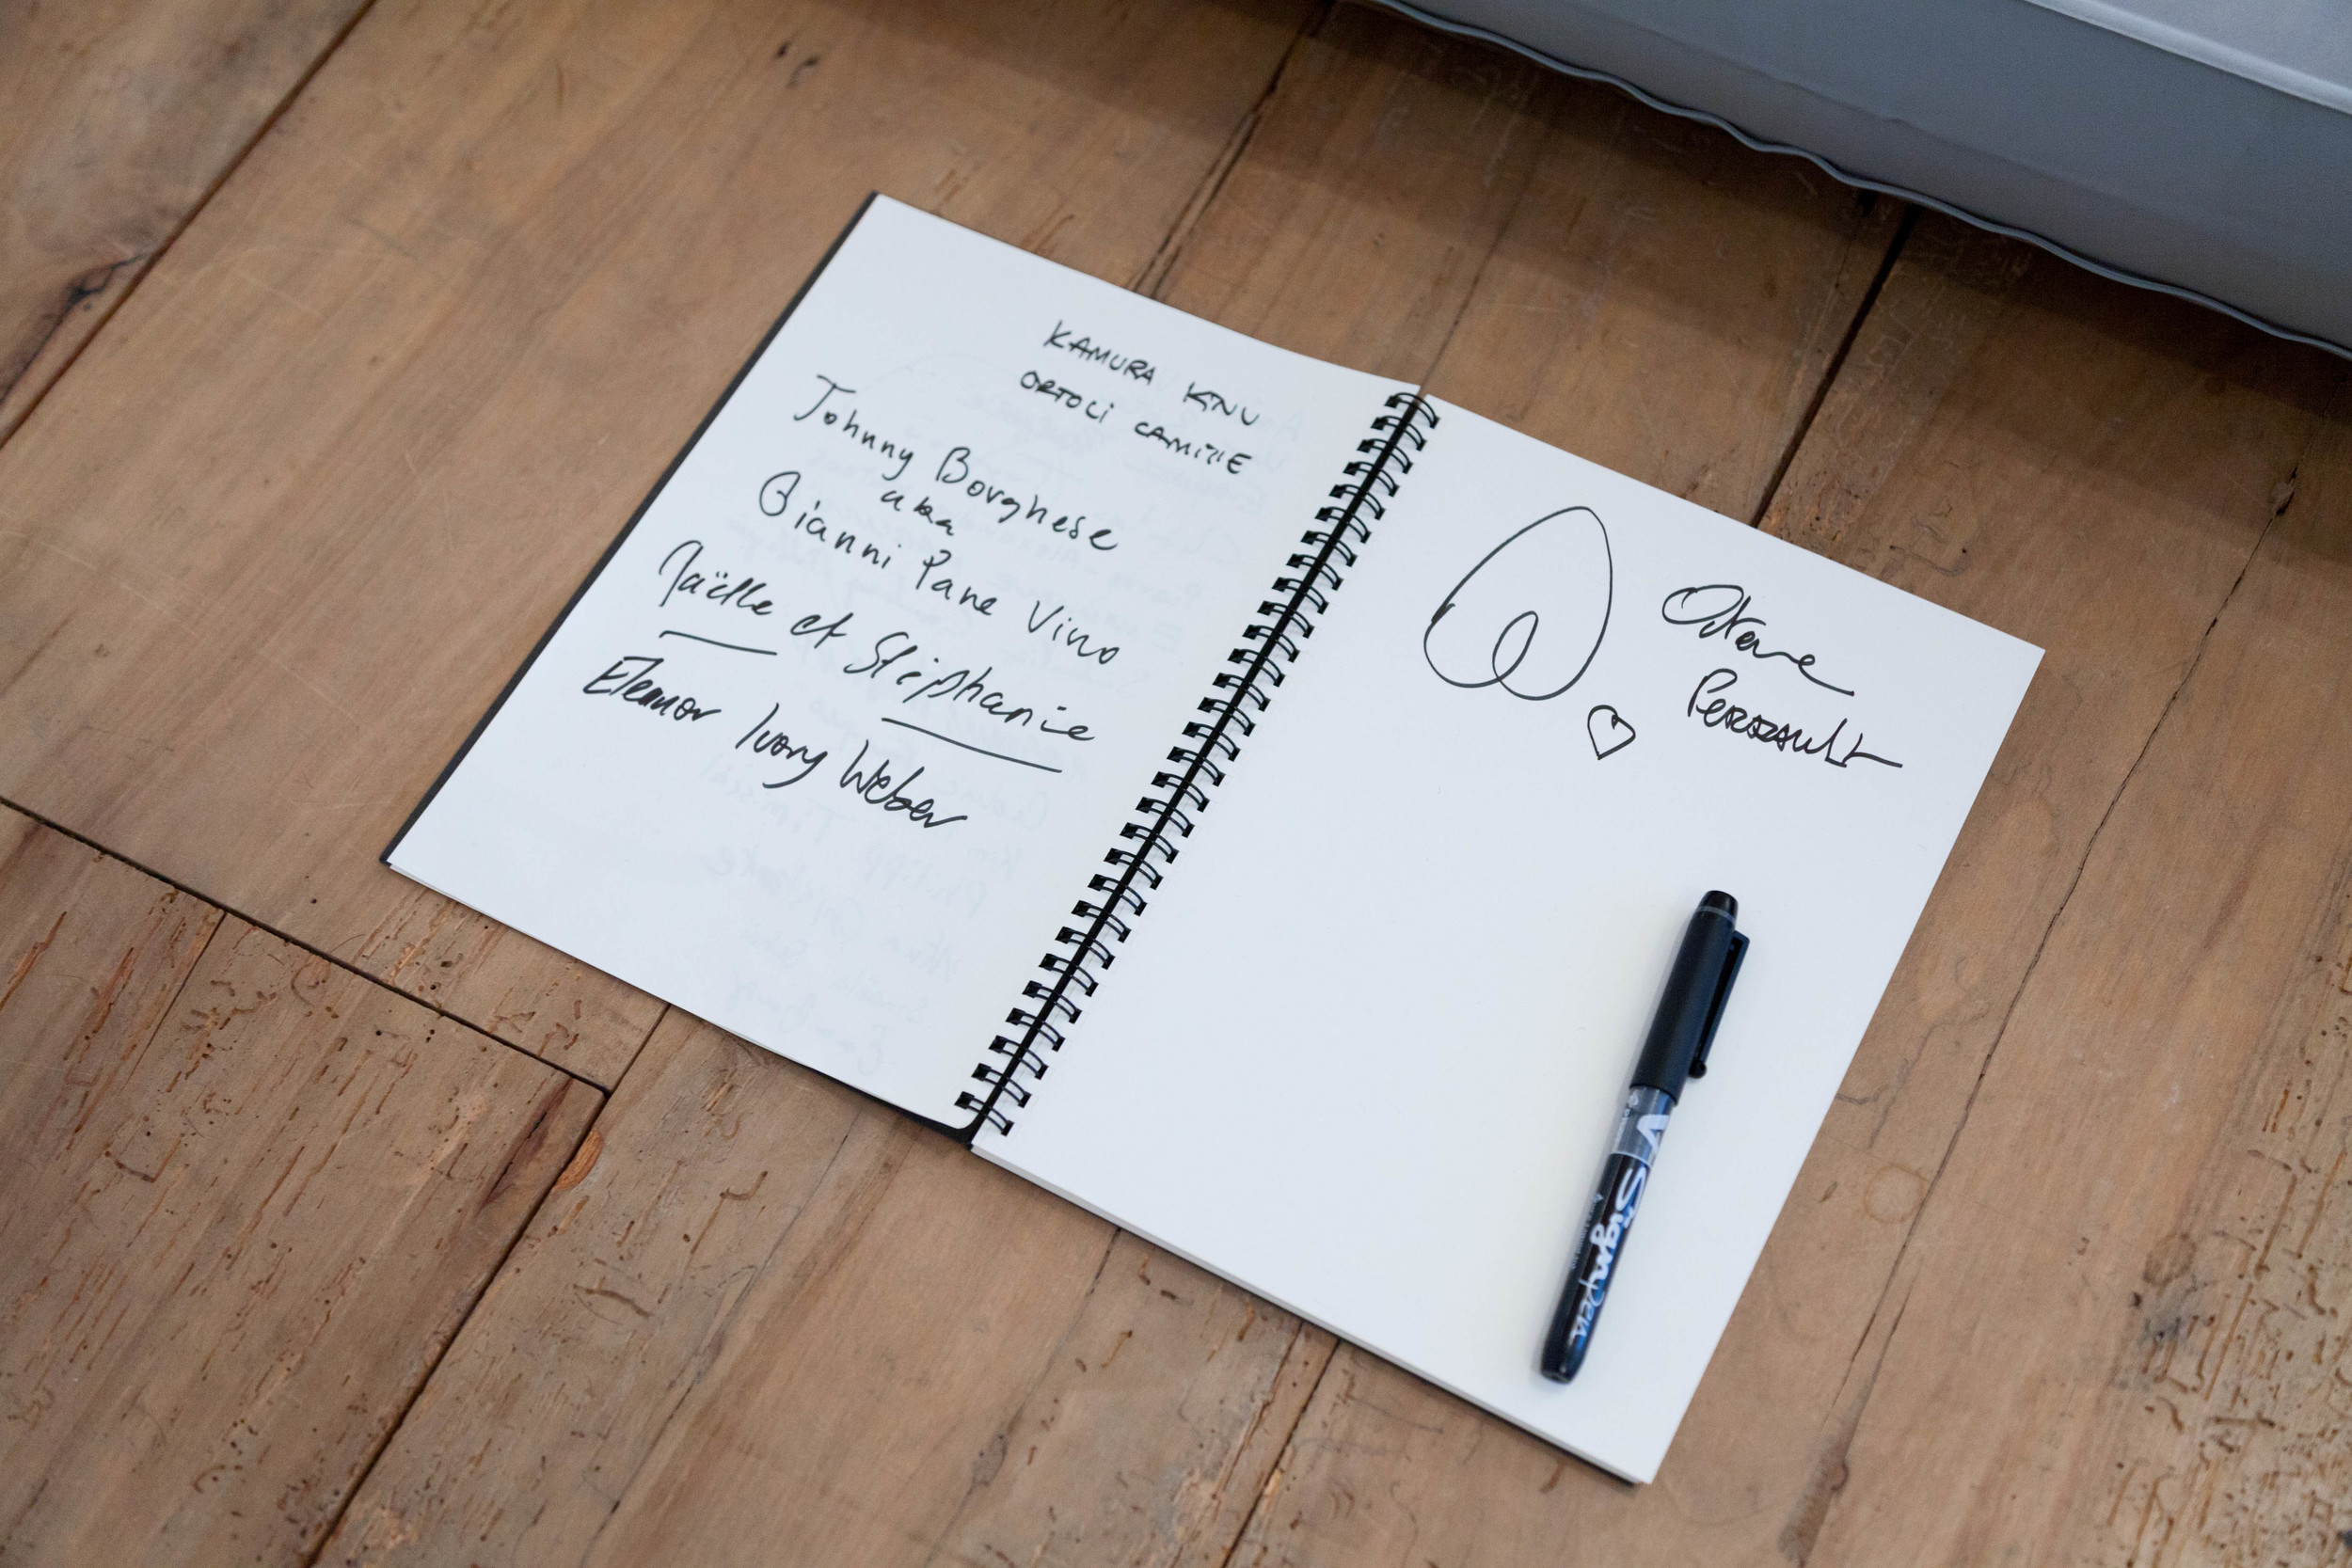 KAMURA KNU
ORTOLI CAMILLE
Johnny Borghese
aka
Gianni Pane Vino
Gaëlle et Stéphanie
Eleanor Ivory Weber
Octave
Perrault
V Sign Pen